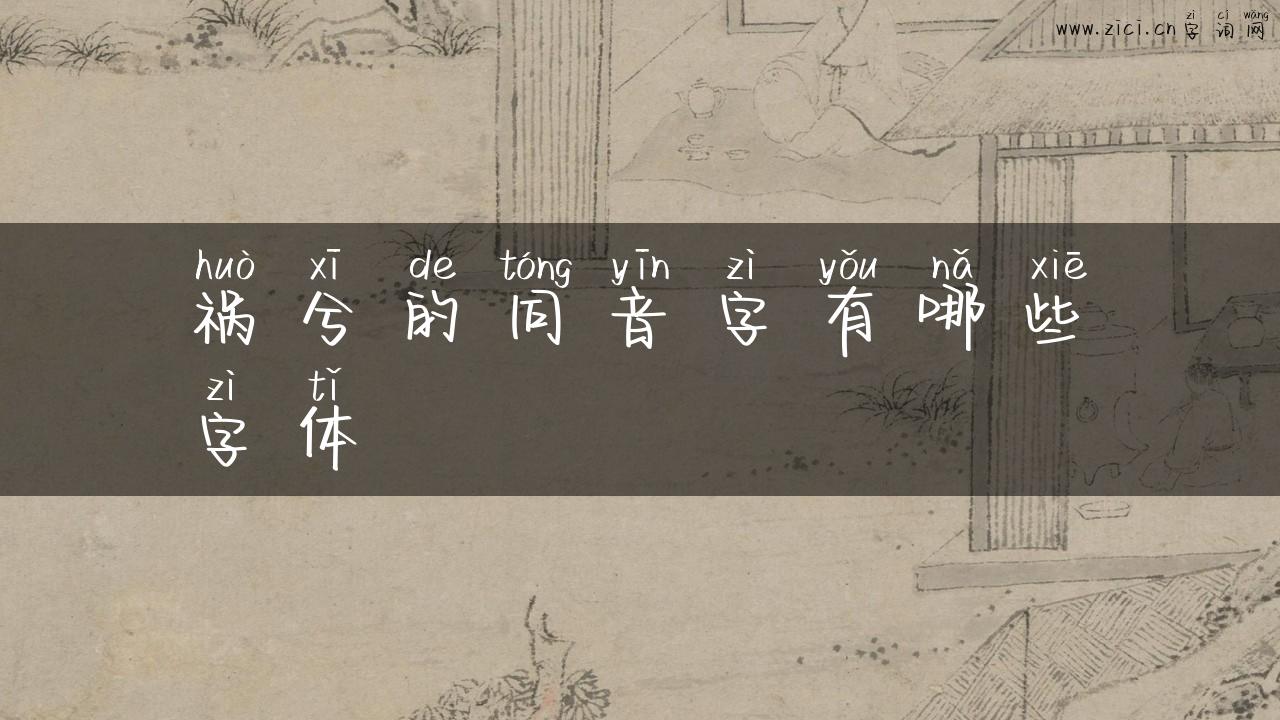 zì cí wǎng
www.zici.cn 字词网
huò xī de tóng yīn zì yǒu nǎ xiē
祸兮的同音字有哪些
zì tǐ
字体